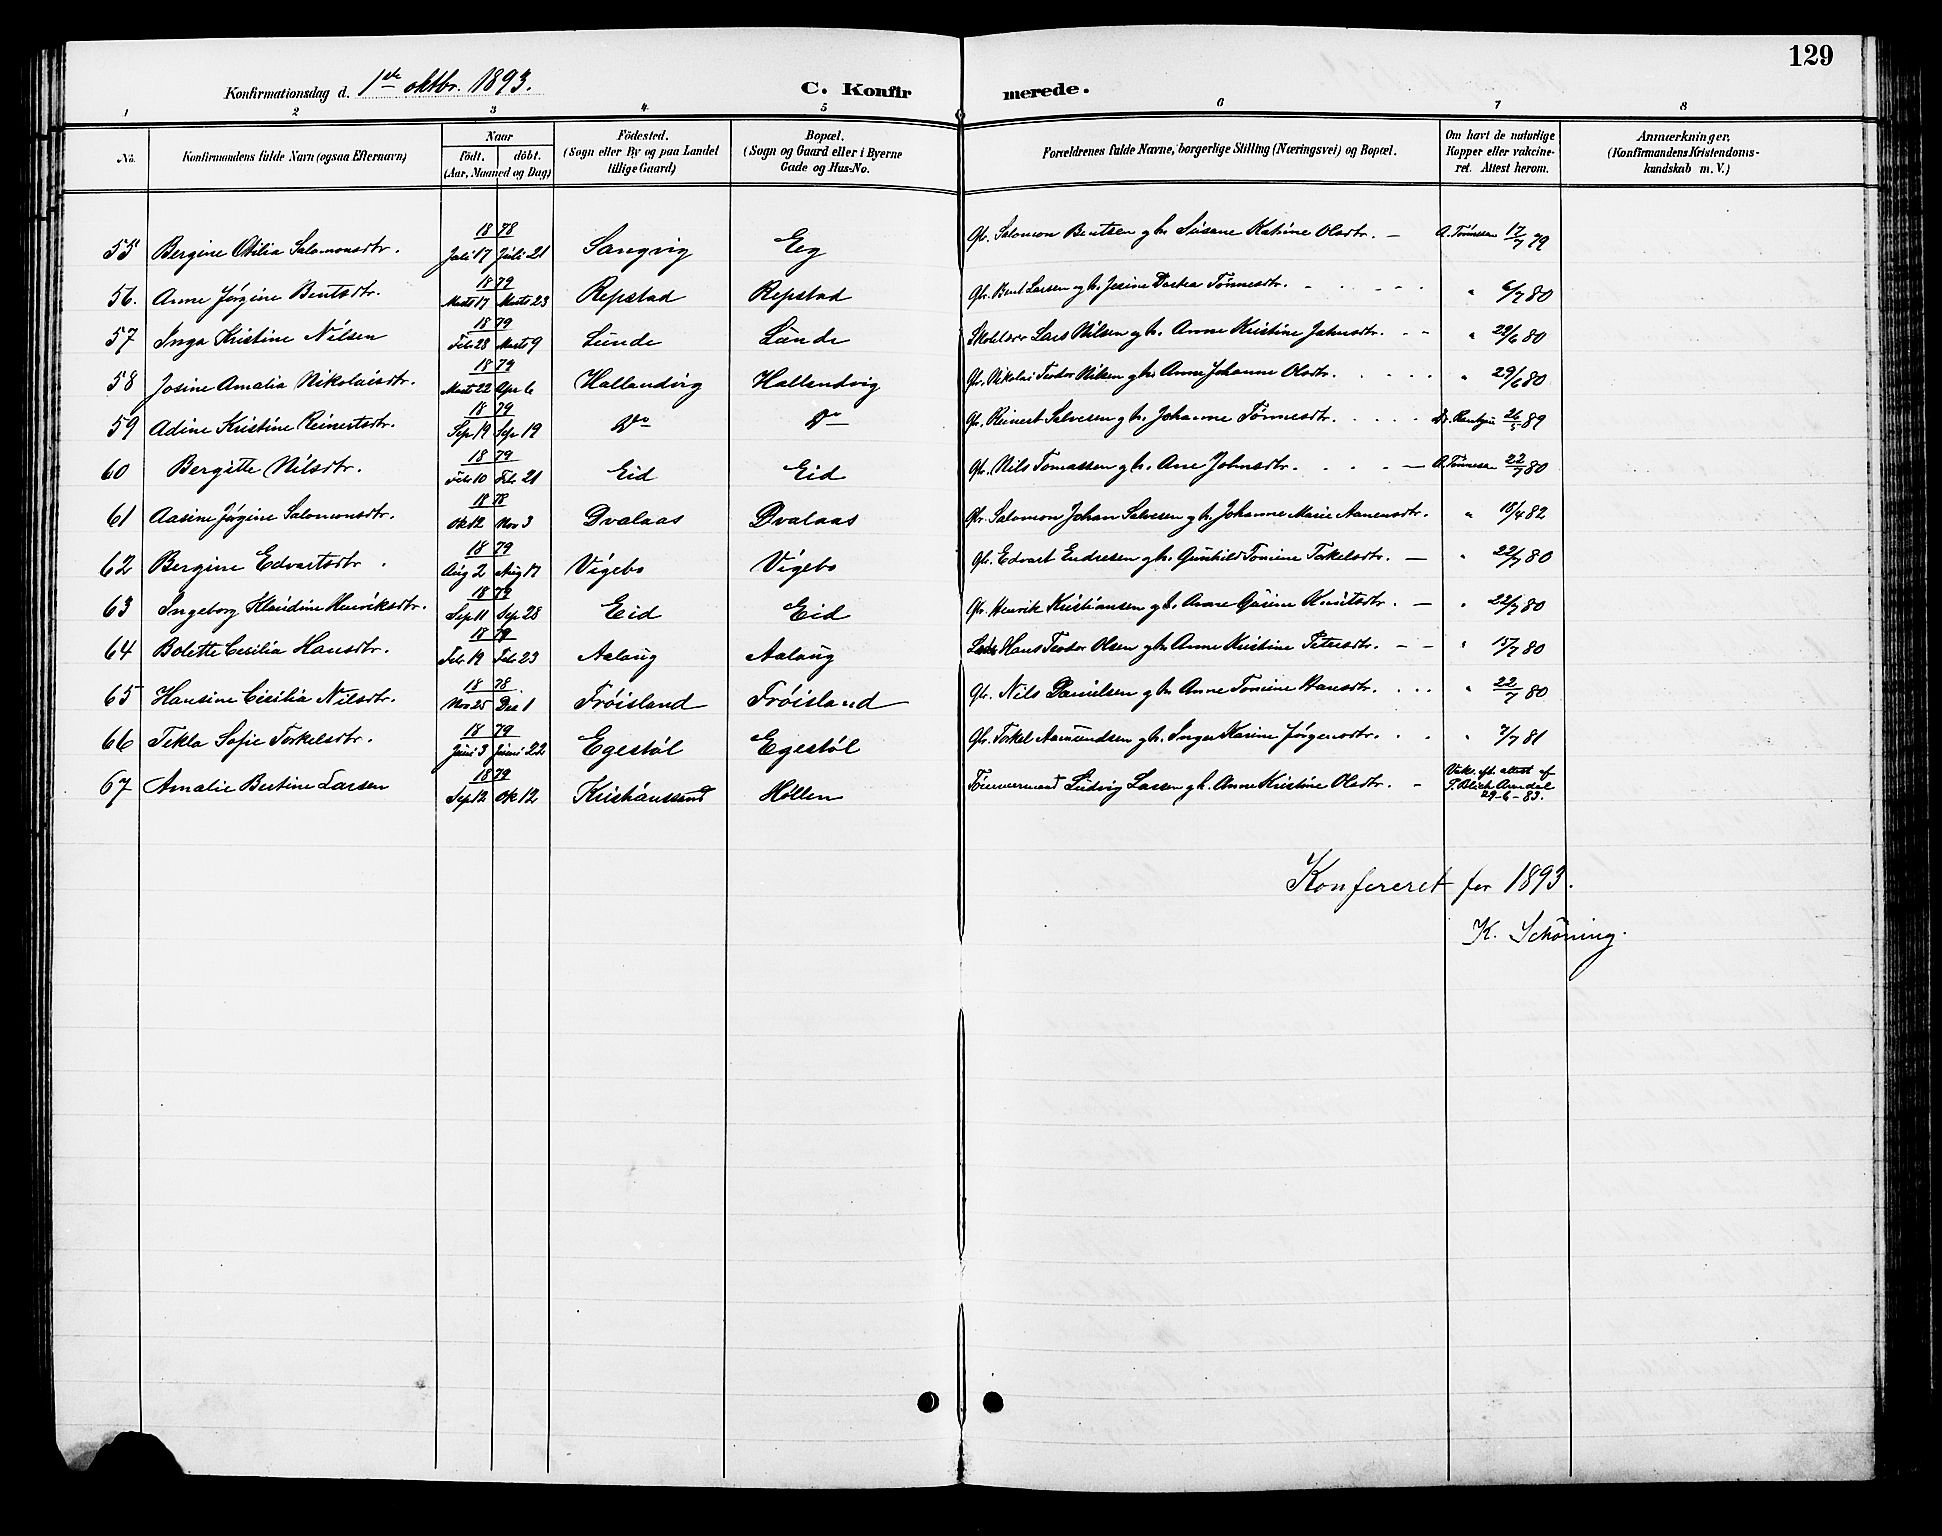 129
Konfirmationsdag d. 1ste oktbr. 1893. C. Konfirmerede.
1 2 3 4 5 6 7 8
No. Konfirmandens fulde Navn (ogsaa Efternavn) Naar födt. döbt. (Aar, Maaned og Dag) Födested. (Sogn eller By og paa Landet tillige Gaard) Bopæl. (Sogn og Gaard eller i Byerne Gade og Hus-No. Forældrenes fulde Navne, borgerlige Stilling (Næringsvei) og Bopæl. Om havt de naturlige Kopper eller vakcineret. Attest herom. Anmærkninger. (Konfirmandens Kristendomskundskab m. V.)
55 Bergine Otilia Salomonsdtr. 1878 Juli 17 Juli 21 Sangvig Eg Gbr. Salomon Bentsen og h. Susane Katrine Olsdtr. — A. Tönnesen 17/7 79
56. Anne Jørgine Bentsdtr. 1879 Marts 17 Marts 23 Repstad Repstad Gbr. Bent Larsen og h. Josine Dortea Tönnesdtr. " 6/7 80
57 Inga Kristine Nilsen 1879 Feb. 28 Marts 9 Lunde Lunde Skolelærer Lars Nilsen og h. Anne Kristine Johnsdtr. " 29/6 80
58 Josine Amalia Nikolaisdtr. 1879 Marts 22 Apr 6 Hallandvig Hallandvig Gbr. Nikolai Teodor Nilsen og h. Anne Johanne Olsdtr. " 29/6 80
59 Adine Kristine Reinertsdtr. 1879 Sep 19 Sep 19 Do Do Gbr. Reinert Salvesen og h. Johanne Tönnesdtr. 26/5 89
60 Bergitte Nilsdtr. 1879 Feb 10 Feb. 21 Eid Eid Gbr. Nils Tomassen og h. Ane Johnsdtr. — A. Tönnesen 22/7 80
61 Aasine Jørgine Salomonsdtr. 1878 Ok 12 Nov 3 Dvalaas Dvalaas Gbr. Salomon Johan Salvesen og h. Johanne Marie Aanensdtr. " 18/4 82
62 Bergine Edvartsdtr. 1879 Aug 2 Aug 17 Vigebo Vigebo Gbr. Edvart Endresen og h. Gunhild Tomine Tarkelsdtr. — " 22/7 80
63 Ingeborg Klaudine Henriksdtr. 1879 Sep 11 Sep 28 Eid Eid Gbr. Henrik Kristiansen og h. Anne Gusine Knutsdtr. — " 22/7 80
64 Bolette Cesilia Hansdtr. 1879 Feb. 19 Feb 23 Aalaug Aalaug Hans Teodor Olsen og h. Anne Kristine Petersdtr. — " 15/7 80
65 Hansine Cecilia Nilsdtr. 1878. Nov 25 Des 1 Frøisland Frøisland Gbr. Nils Danielsen og h. Anne Tomine Hansdtr. " 22/7 80
66 Tekla Sofie Torkelsdtr. 1879 Juni 3 Juni 22 Egestøl Egestøl Gbr. Torkel Aamundsen og h. Inger Karine Jørgensdtr. " 7/7 81
67 Amalie Bertine Larsen 1879 Sep 12 Ok 12 Kristianssand Høllen Tömmermand Ludvig Larsen og h. Anne Kristine Olsdtr. — Vak. eft. attest af P. Blich Arendal 29-6-83.
Konfereret for 1893.
K. Schöning.